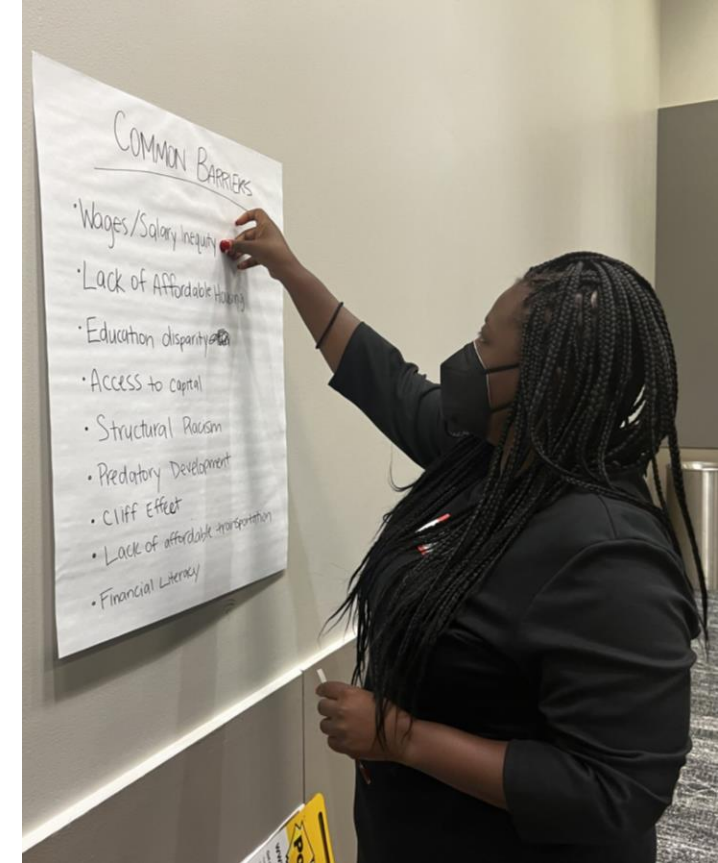 COMMON BARRIERS
• Wages/Salary Inequity
• Lack of Affordable Housing
• Education disparity
• Access to capital
• Structural Racism
• Predatory Development
• Cliff Effect
• Lack of affordable transportation
• Financial Literacy